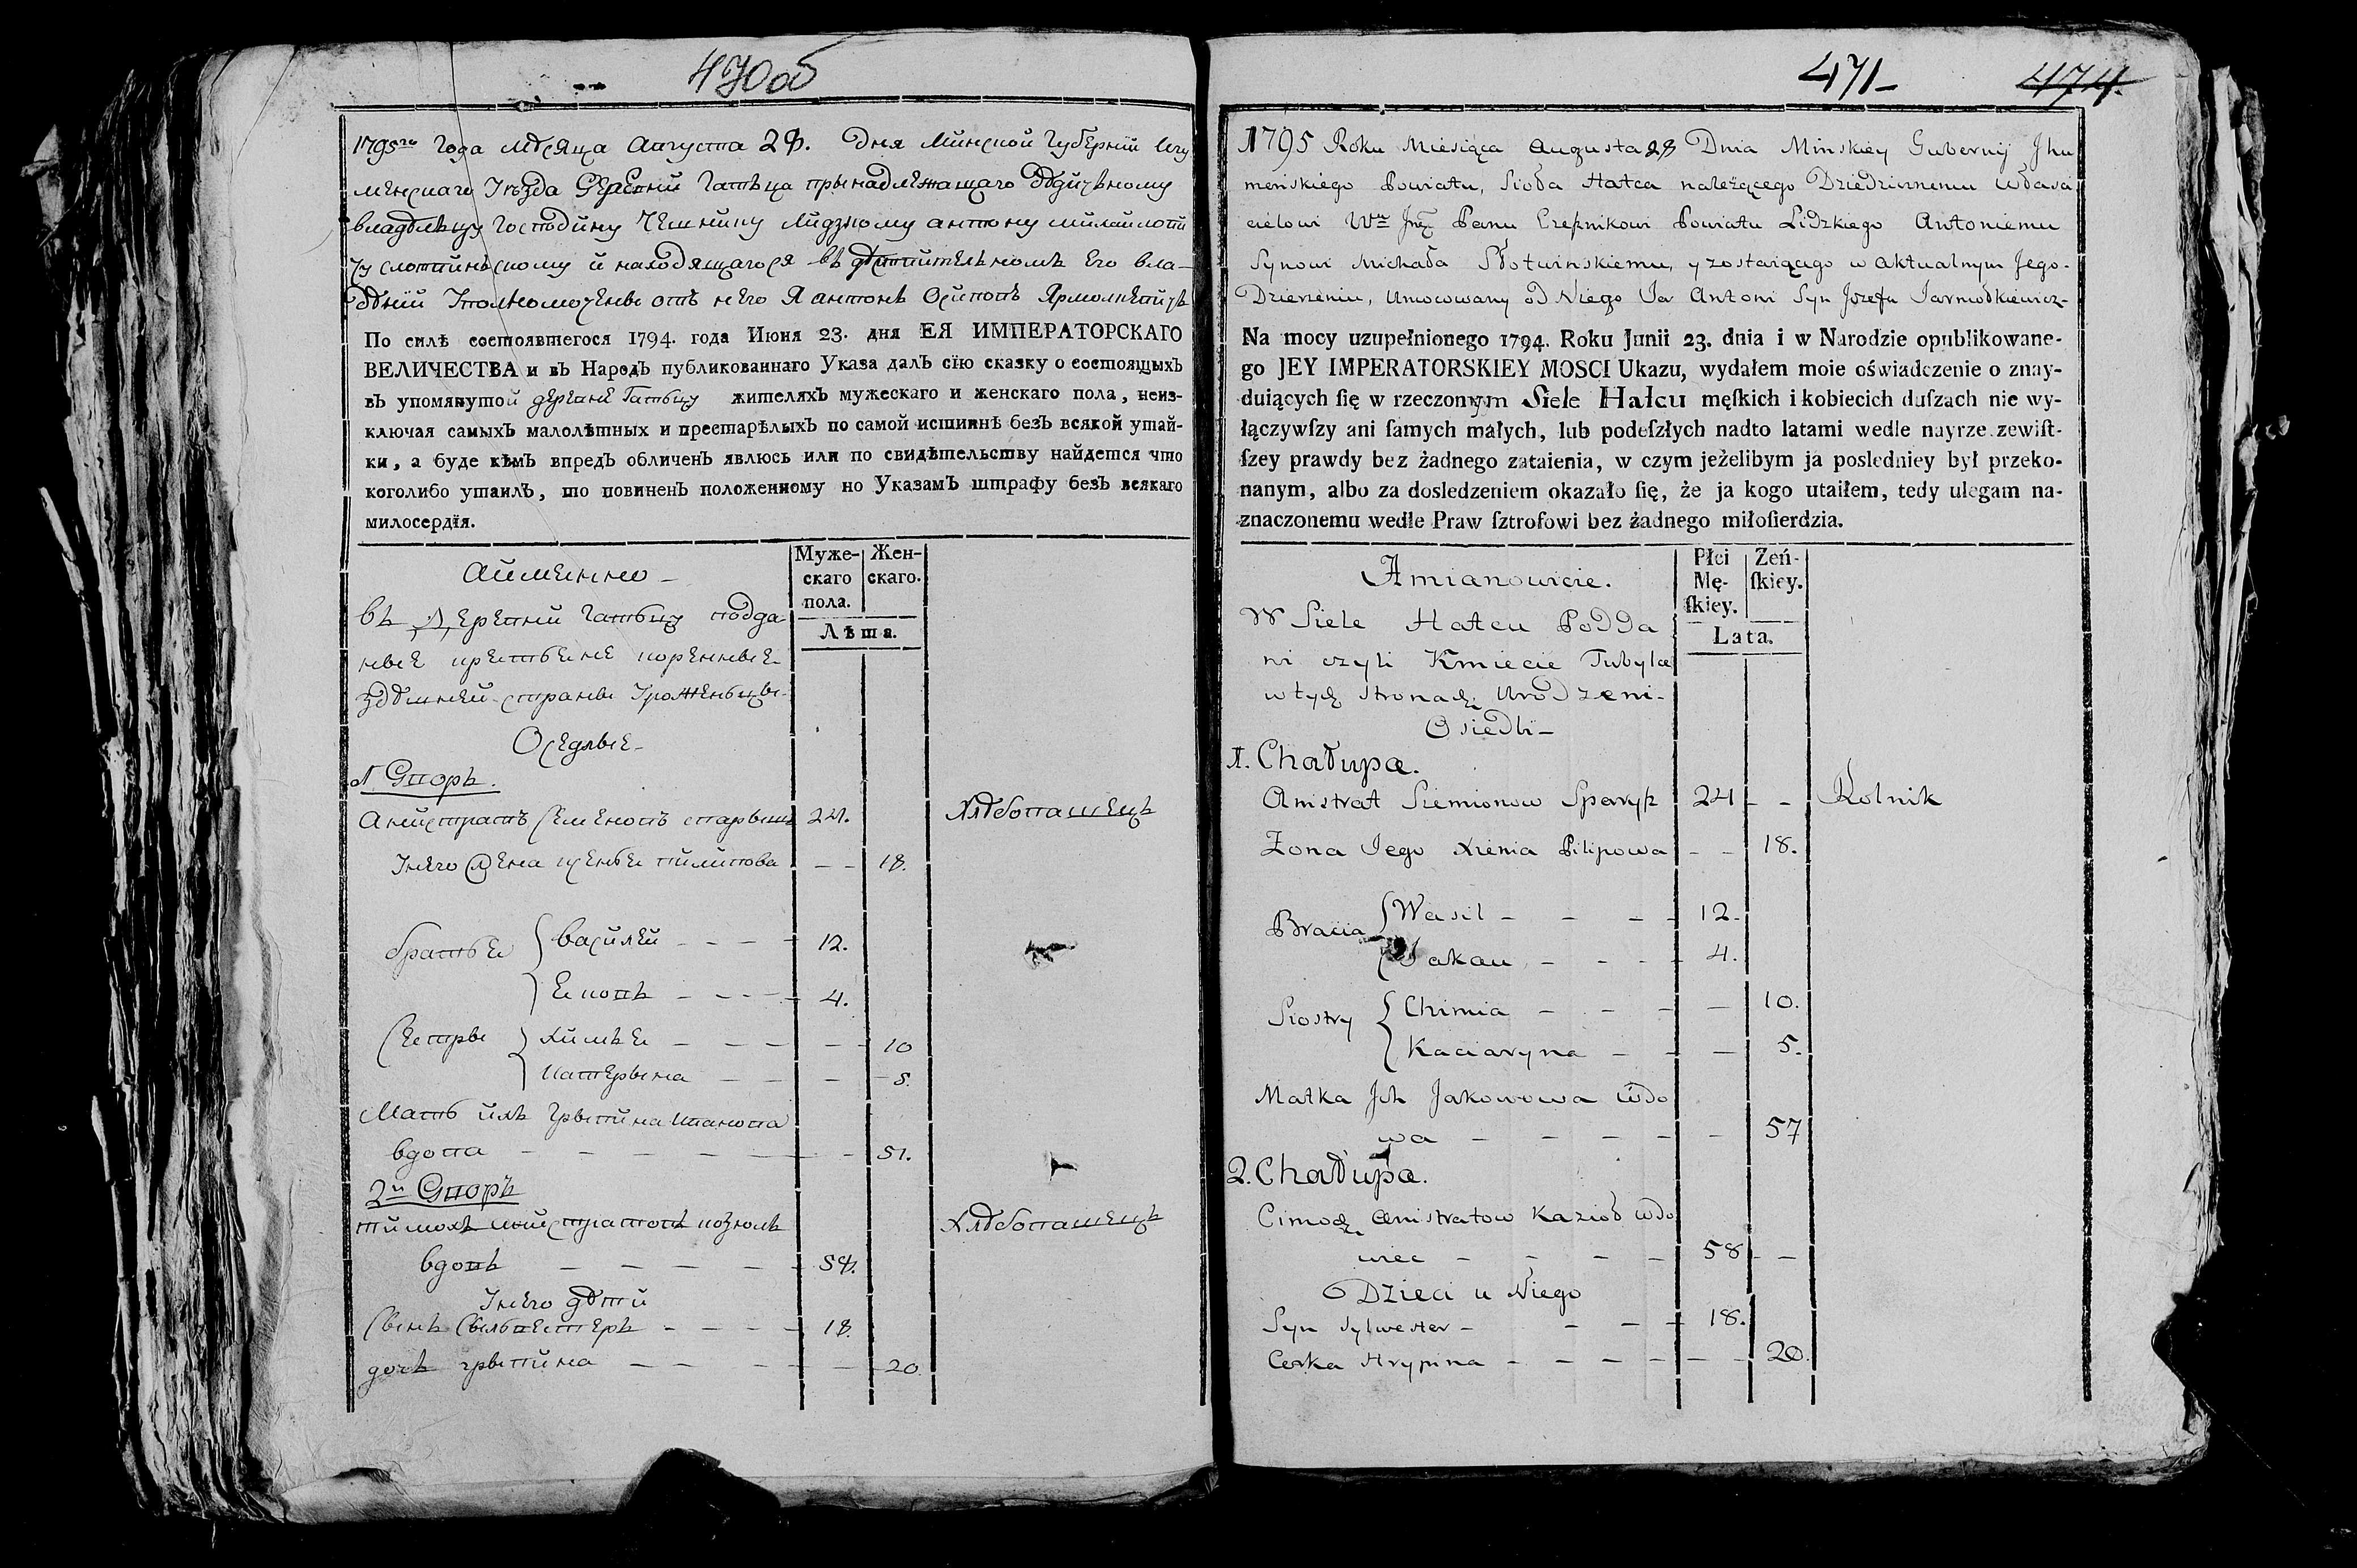 470об
1795го Года мѣсяца Августа 28. Дня Минской Губернїи Игу
менскаго Уѣзда Деревни Гатьца принадлежащаго Дѣдичному
владѣльцу Господину Чешнику Лидзкому Антону Михайлови
чу Слотвинскому и находящагося въ дѣйствительномъ Его вла-
дѣнїи Уполномоченны отъ него Я Антонъ Осиповъ Ярмолкевичъ
По силѣ состоявшегося 1794. года Июня 23. дня ЕЯ ИМПЕРАТОРСКАГО
ВЕЛИЧЕСТВА и въ Народъ публикованнаго Указа далъ сїю сказку о состоящыхъ
въ упомянутой деревне Гатьцу жителяхъ мужескаго и женскаго пола, неиз-
ключая самыхъ малолѣтных и престарѣлыхъ по самой истиннѣ безъ всякой утай-
ки, а буде кѣмъ впредъ обличенъ явлюсь или по свидѣтельству найдется что
коголибо утаилъ, то повиненъ положенному по Указамъ штрафу безъ всякаго
милосердїя.
Аимѣнно -
Муже-
скаго
пола.
Жен-
скаго.
Лѣта.
въ Деревни Гатьцу подда-
ные крестьяне коренные
здѣшней стране Уроженьцы
Оседлые-
1. Дворъ.
Анистратъ Семеновъ 24. Хлѣбопашецъ
Унего жена Ксенья Пилипова - - 18.
братья { василей - - - - 12.
Яковъ - - - - 4.
Сестры } химья - - - - - 10
Катерына - - - - 5.
Мать ихъ
вдова - - - - - - 57.
2й Дворъ
Тимохъ Анистратовъ козюлъ Хлѣбопашецъ
вдовъ - - - - - 58.
Унего дѣти
Сынъ Сыльвестеръ - - - - 18.
дочь грыпина - - - - - 20
471-
474.
1795 Roku Miesiąca Augusta 28 Dnia Minskiey Gubernij Jhu
menskiego Powiatu, Sioła Hatca należącego Dziedzicznemu Właści
cielowi Wu Jmć Panu Czesznikowi Powiatu Lidzkiego Antoniemu
Synowi Michała Słotwinskiemu, y zostaiącego w Aktualnym Jego-
Dzierżeniu, Umocowany od Niego Ja Antoni Syn Jozefa Jarmołkiewicz-
Na mocy uzupełnionego 1794. Roku Junii 23. dnia i w Narodzie opublikowane-
go JEY IMPERATORSKIEY MOSCI Ukazu, wydałem moie oświadczenie o znay-
duiących ſię w rzeczonym Siele Hatcu męſkich i kobiecich duſzach nie wy-
łączywſzy ani ſamych małych, lub podeſzłych nadto latami wedle nayrzezewiſt-
ſzey prawdy bez żadnego zataienia, w czym jeżelibym ja posledniey był przeko-
nanym, albo za dosledzeniem okazało ſię, że ja kogo utaiłem, tedy ulegam na-
znaczonemu wedle Praw ſztrofowi bez żadnego miłoſierdzia.
Amianowicie.
Płci
Mę-
ſkiey.
Zeń-
ſkiey.
Lata.
W Siele Hatcu Podda
ni czyli Kmiecie Tubylce
w tych stronach Urodzeni-
Osiedli-
1. Chałupa.
Anistrat Siemionow 24 - - Rolnik
Żona Jego Xienia Pilipowa - - 18.
Bracia { Wasil - - - - 12.
Jakau - - - - 4.
Siostry { Chimia - - - - - 10.
Kaciaryna - - - 5.
Matka Jch Jakowowa Wdo
wa - - - - - 57
2. Chałupa.
Cimoch Anistratow Kazioł Wdo
wiec - - - - 58 - -
Dzieci u Niego
Syn Sylwester - - - - 18.
Corka Hrypina - - - - - - 20.